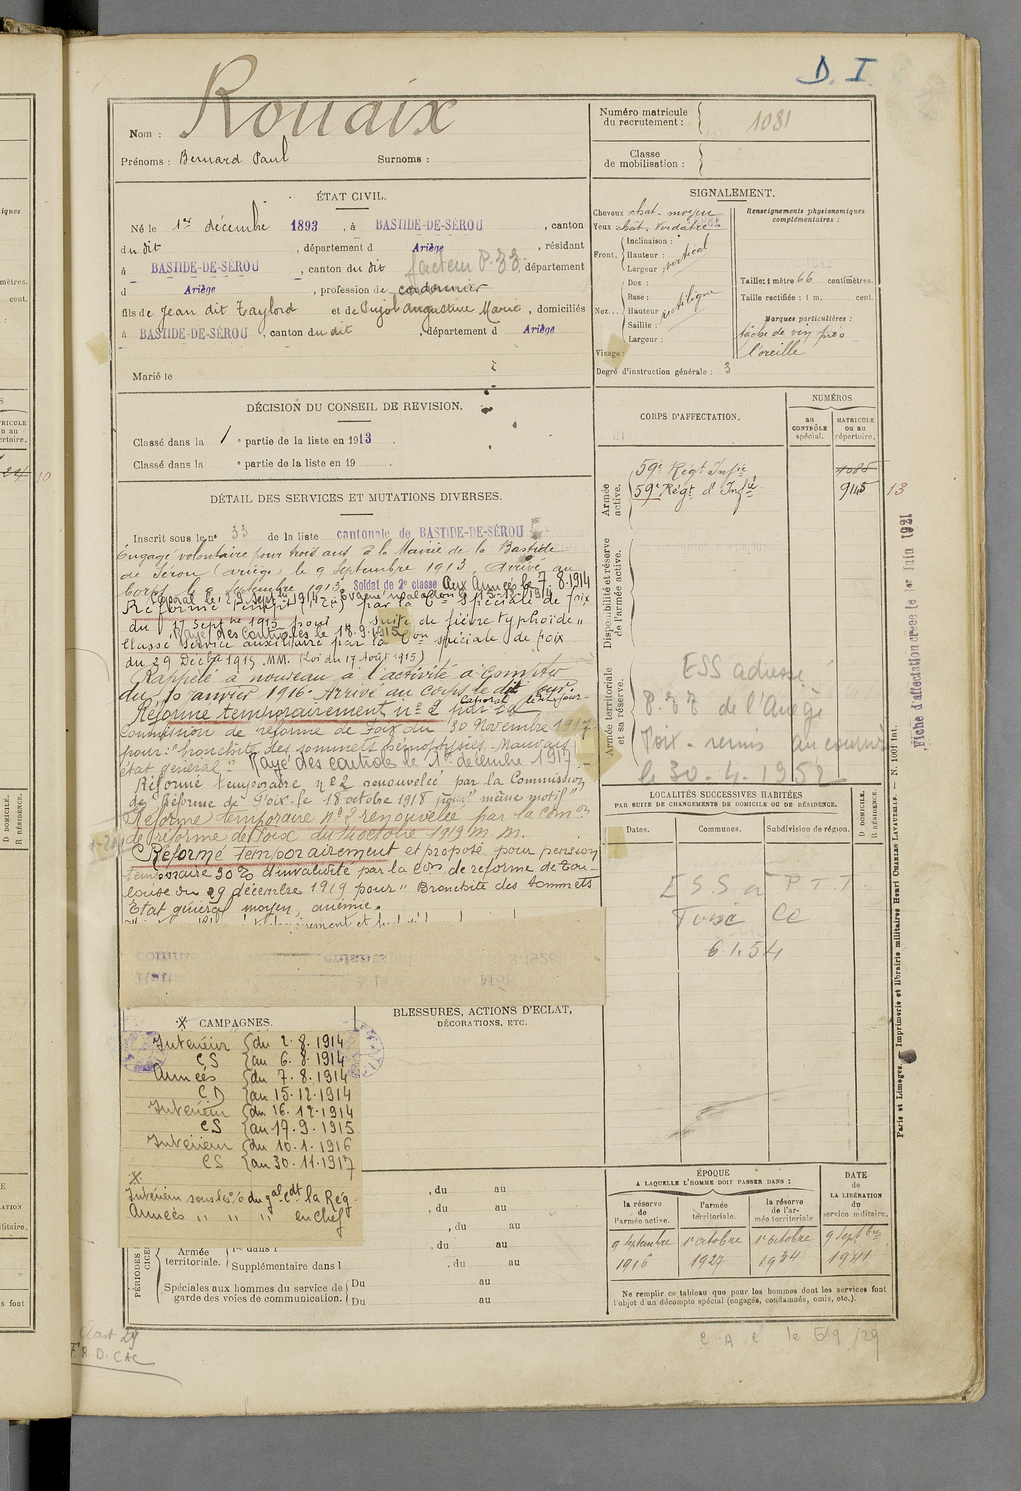 D. I.
Nom : Rouaix
Prénoms : Bernard Paul Surnoms :
Numéro matricule du recrutement : 1081
Classe de mobilisation :
ÉTAT CIVIL.
Né le 1er décembre 1893, à BASTIDE-DE-SÉROU, canton
du dit, département d Ariège, résidant
à BASTIDE-DE-SÉROU, canton du dit facteur P. , département
d Ariège, profession de cordonnier
fils de Jean dit Taylord et de Pujol Angustine Marie, domiciliés
à BASTIDE-DE-SÉROU, canton du dit, département d Ariège
Marié le
SIGNALEMENT.
Cheveux chat. moyen
Yeux chât. Verdâtre
Front. Inclinaison :
Hauteur : vertical
Largeur :
Nez... Dos :
Base : rectiligne
Hauteur
Saillie :
Largeur :
Visage :
Renseignements physionomiques complémentaires :
Taille : 1 mètre 66 centimètres.
Taille rectifiée : 1 m. cent.
Marques particulières :
tâche de vin près
l'oreille
Degré d'instruction générale : 3
DÉCISION DU CONSEIL DE REVISION.
Classé dans la 1 e partie de la liste en 1913.
Classé dans la e partie de la liste en 19
DÉTAIL DES SERVICES ET MUTATIONS DIVERSES.
Inscrit sous le n° 33 de la liste cantonale de BASTIDE-DE-SÉROU
Engagé volontaire pour trois ans à la Mairie de la Bastide
de Sérou (Ariège) le 9 Septembre 1913. Arrivé au
Corps le Septembre 1913, Soldat de 2e classe Aux Armées le 7.8.1914
Caporal le 19 Sept 1914. Evacué le 15-12-1914
Réformé tempre par la Con Spéciale de Foix
du 17 Septbre 1915 pour suite de fièvre typhoïde"
Rayé des contrôles le 18.9.1915
Classé Service auxiliaire par la Con spéciale de Foix
du 29 Décbre 1915. MM. (Loi du 17 Août 1915)
Rappelé à nouveau à l'activité à compter
du 10 janvier 1916. Arrivé au Corps le dit jour.
Caporal le dit jour.
Réformé temporairement n° 2 par la
Commission de réforme de Foix du 30 Novembre 1917
pour : "bronchite des sommets hémoptysies. Mauvais
état général". Rayé des contrôles le 1er décembre 1917.
Réforme temporaire n° 2 renouvelée par la Commission
de Réforme de Foix le 18 octobre 1918 pour "même motif"
Réforme temporaire N° 2 renouvelée par la Comon
de réforme de Foix du 14 octobre 1919 M. M.
Réformé temporairement et proposé pour pension
temporaire 30% d'invalidité par la Con de réforme de Tou-
louse du 29 décembre 1919 pour "Bronchite des Sommets
Etat général moyen, anémie.
CORPS D'AFFECTATION.
NUMÉROS
au CONTRÔLE spécial.
MATRICULE ou au répertoire.
Armée active.
59e Régt Infie 1085
59e Régt d'Infie 9145 13
Disponibilité et réserve de l'armée active.
Armée territoriale et sa réserve.
ESS adressé
de l'Ariège
Foix - remis au courrier
le 30. 4. 1952
Fiche d'affectation créée le 1er Juin 1921
LOCALITÉS SUCCESSIVES HABITÉES
PAR SUITE DE CHANGEMENTS DE DOMICILE OU DE RÉSIDENCE.
Dates. Communes. Subdivision de région. D DOMICILE. R RÉSIDENCE.
E S S à P T T
Foix Ce
6.1.54
* CAMPAGNES.
Intérieur du 2. 8. 1914
CS au 6. 8. 1914
Armées du 7. 8. 1914
CD au 15.12.1914
Intérieur du 16.12.1914
CS au 17. 9. 1915
Intérieur du 10. 1. 1916
CS au 30.11.1917
*
Intérieur sous les o du gal Cdt la Rég
Armées " " " en Chef
BLESSURES, ACTIONS D'ÉCLAT,
DÉCORATIONS, ETC.
, du au
, du au
, du au
, du au
Armée territoriale.
Supplémentaire dans l . du au
Spéciales aux hommes du service de garde des voies de communication. Du au
Du au
ÉPOQUE
A LAQUELLE L'HOMME DOIT PASSER DANS :
la réserve de l'armée active.
l'armée territoriale.
la réserve de l'armée territoriale
DATE de LA LIBÉRATION du service militaire.
9 septembre 1916
1er octobre 1927
1er octobre 1934
9 septbre 1941
Ne remplir ce tableau que pour les hommes dont les services font
l'objet d'un décompte spécial (engagés, condamnés, omis, etc.).
Paris et Limoges. Imprimerie et librairie militaires Henri CHARLES-LAVAUZELLE. — N. 1001 Int.
R. D. CAC
C. A. C le 5/9/29